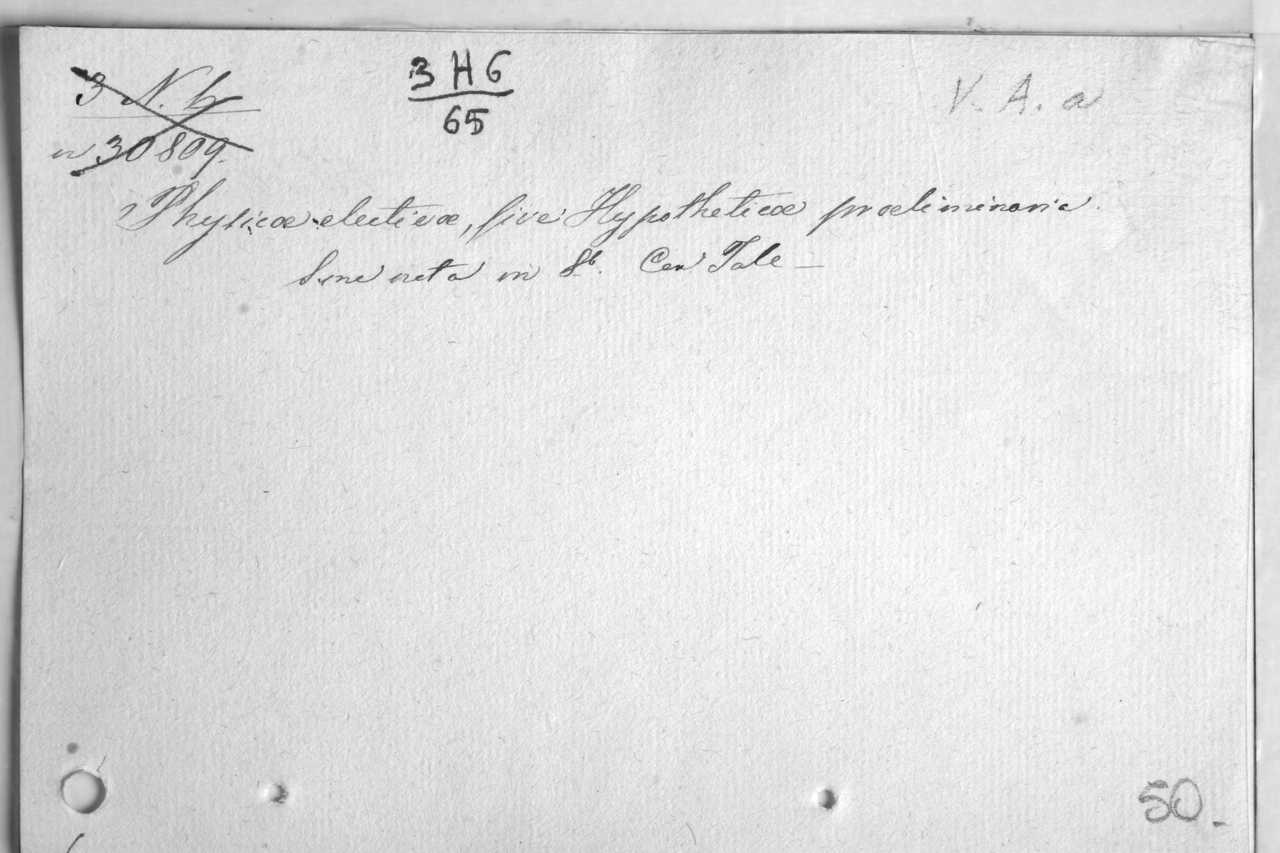 3 N. b
n 30809.
3 H 6
65
V. A. a
Physicæ electivæ, sive Hypotheticæ præliminaria.
Sine nota in 8º. Con Tole
50.